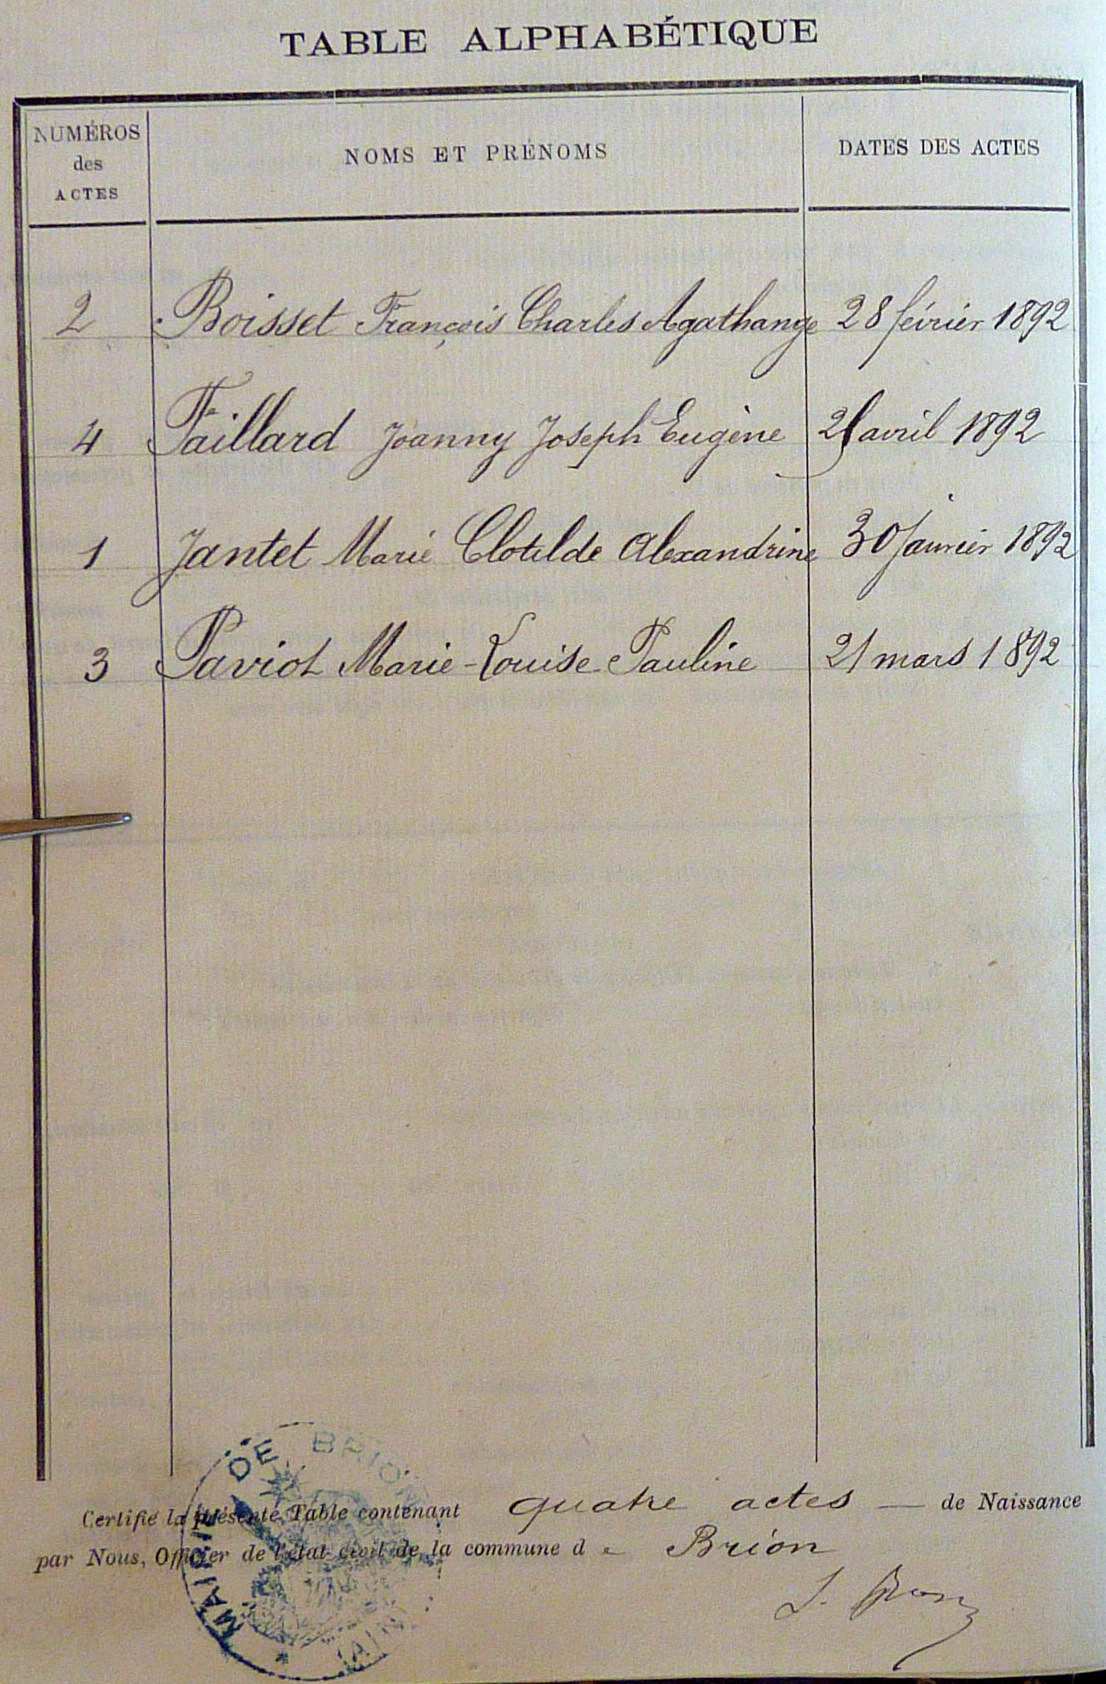 TABLE ALPHABÉTIQUE
NUMÉROS
des
ACTES
NOMS ET PRÉNOMS
DATES DES ACTES
2 Boisset François Charles Agathange 28 février 1892
4 Faillard Joanny Joseph Eugène avril 1892
1 Jantet Marie Clotilde Alexandrine 30 Janvier 1892
3 Paviot Marie-Louise Pauline 21 mars 1892
Certifié la présente Table contenant quatre actes — de Naissance
par Nous, Officier de l'état civil de la commune de Brion
MAIRIE DE BRION
AIN